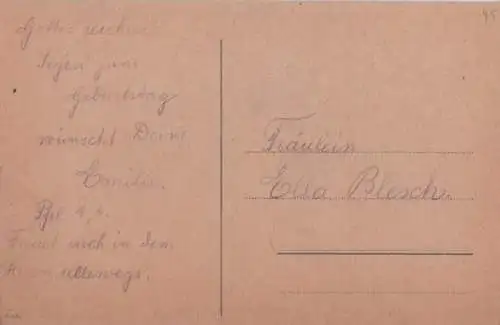 Gottes reichen
Segen zum
Geburtstag
wünscht Deine
Camilla.
Phil. 4,4.
Freuet euch in dem
Herrn allewege.
Fräulein
Elsa Blesch